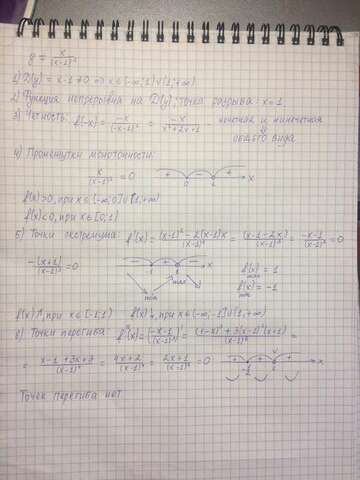 y = x/(x-1)²
1) D(y) = x-1≠0 => x∈(-∞;1)∪(1;+∞)
2) Функция непрерывна на D(y); точка разрыва: x=1
3) Четность: f(-x) = -x/(-x-1)² = -x/(x²+2x+1) - нечетная и нечетная
общего вида
4) Промежутки монотонности:
x/(x-1)² = 0
- + + x
0 1
f(x)>0, при x∈
f(x)<0, при x∈[0;1)
5) Точки экстремума: f'(x) = ((x-1)²-2(x-1)x)/(x-1)⁴ = (x-1-2x)/(x-1)³ = (-x-1)/(x-1)³ = 0
-(x+1)/(x-1)³ = 0
- + - x
-1 1
min max
f(x) max = 1
f(x) min = -1
f(x)↗, при x∈[-1;1) f(x)↘, при x∈(-∞;-1]∪(1;+∞)
6) Точки перегиба:
= (x-1+3x+3)/(x-1)⁴ = (4x+2)/(x-1)⁴ = (2x+1)/(x-1)⁴ = 0
x
Точек перегиба нет